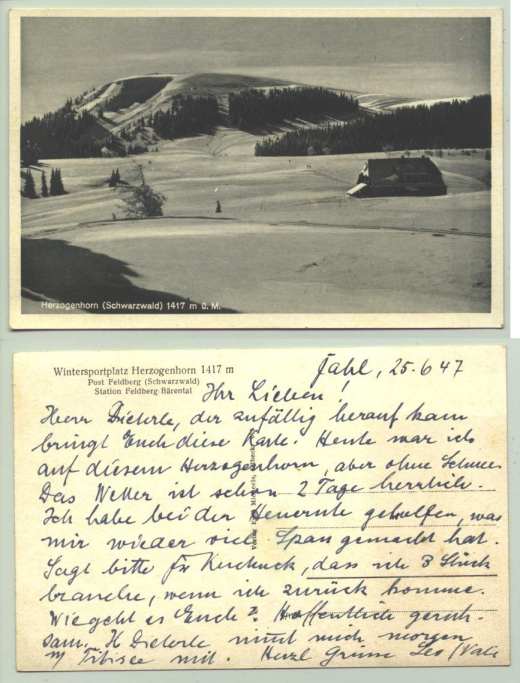 Herzogenhorn (Schwarzwald) 1417 m ü. M.
Wintersportplatz Herzogenhorn 1417 m
Post Feldberg (Schwarzwald)
Station Feldberg-Bärental
Fahl, 25.6 47
Ihr Lieben,
Herr Dieterle, der zufällig herauf kam
bringt Euch diese Karte. Heute war ich
auf diesem Herzogenhorn, aber ohne Schnee
Das Wetter ist schon 2 Tage herrlich.
Ich habe bei der Heuernte geholfen, was
mir wieder viel Spass gemacht hat.
Sagt bitte Fr , dass ich 3 Stück
brauche, wenn ich zurück komme.
Wie geht es Euch? Hoffentlich geruh-
sam. H Dieterle nimt mich morgen
n/ Titisee mit. Herzl Grüsse Leo/Vati